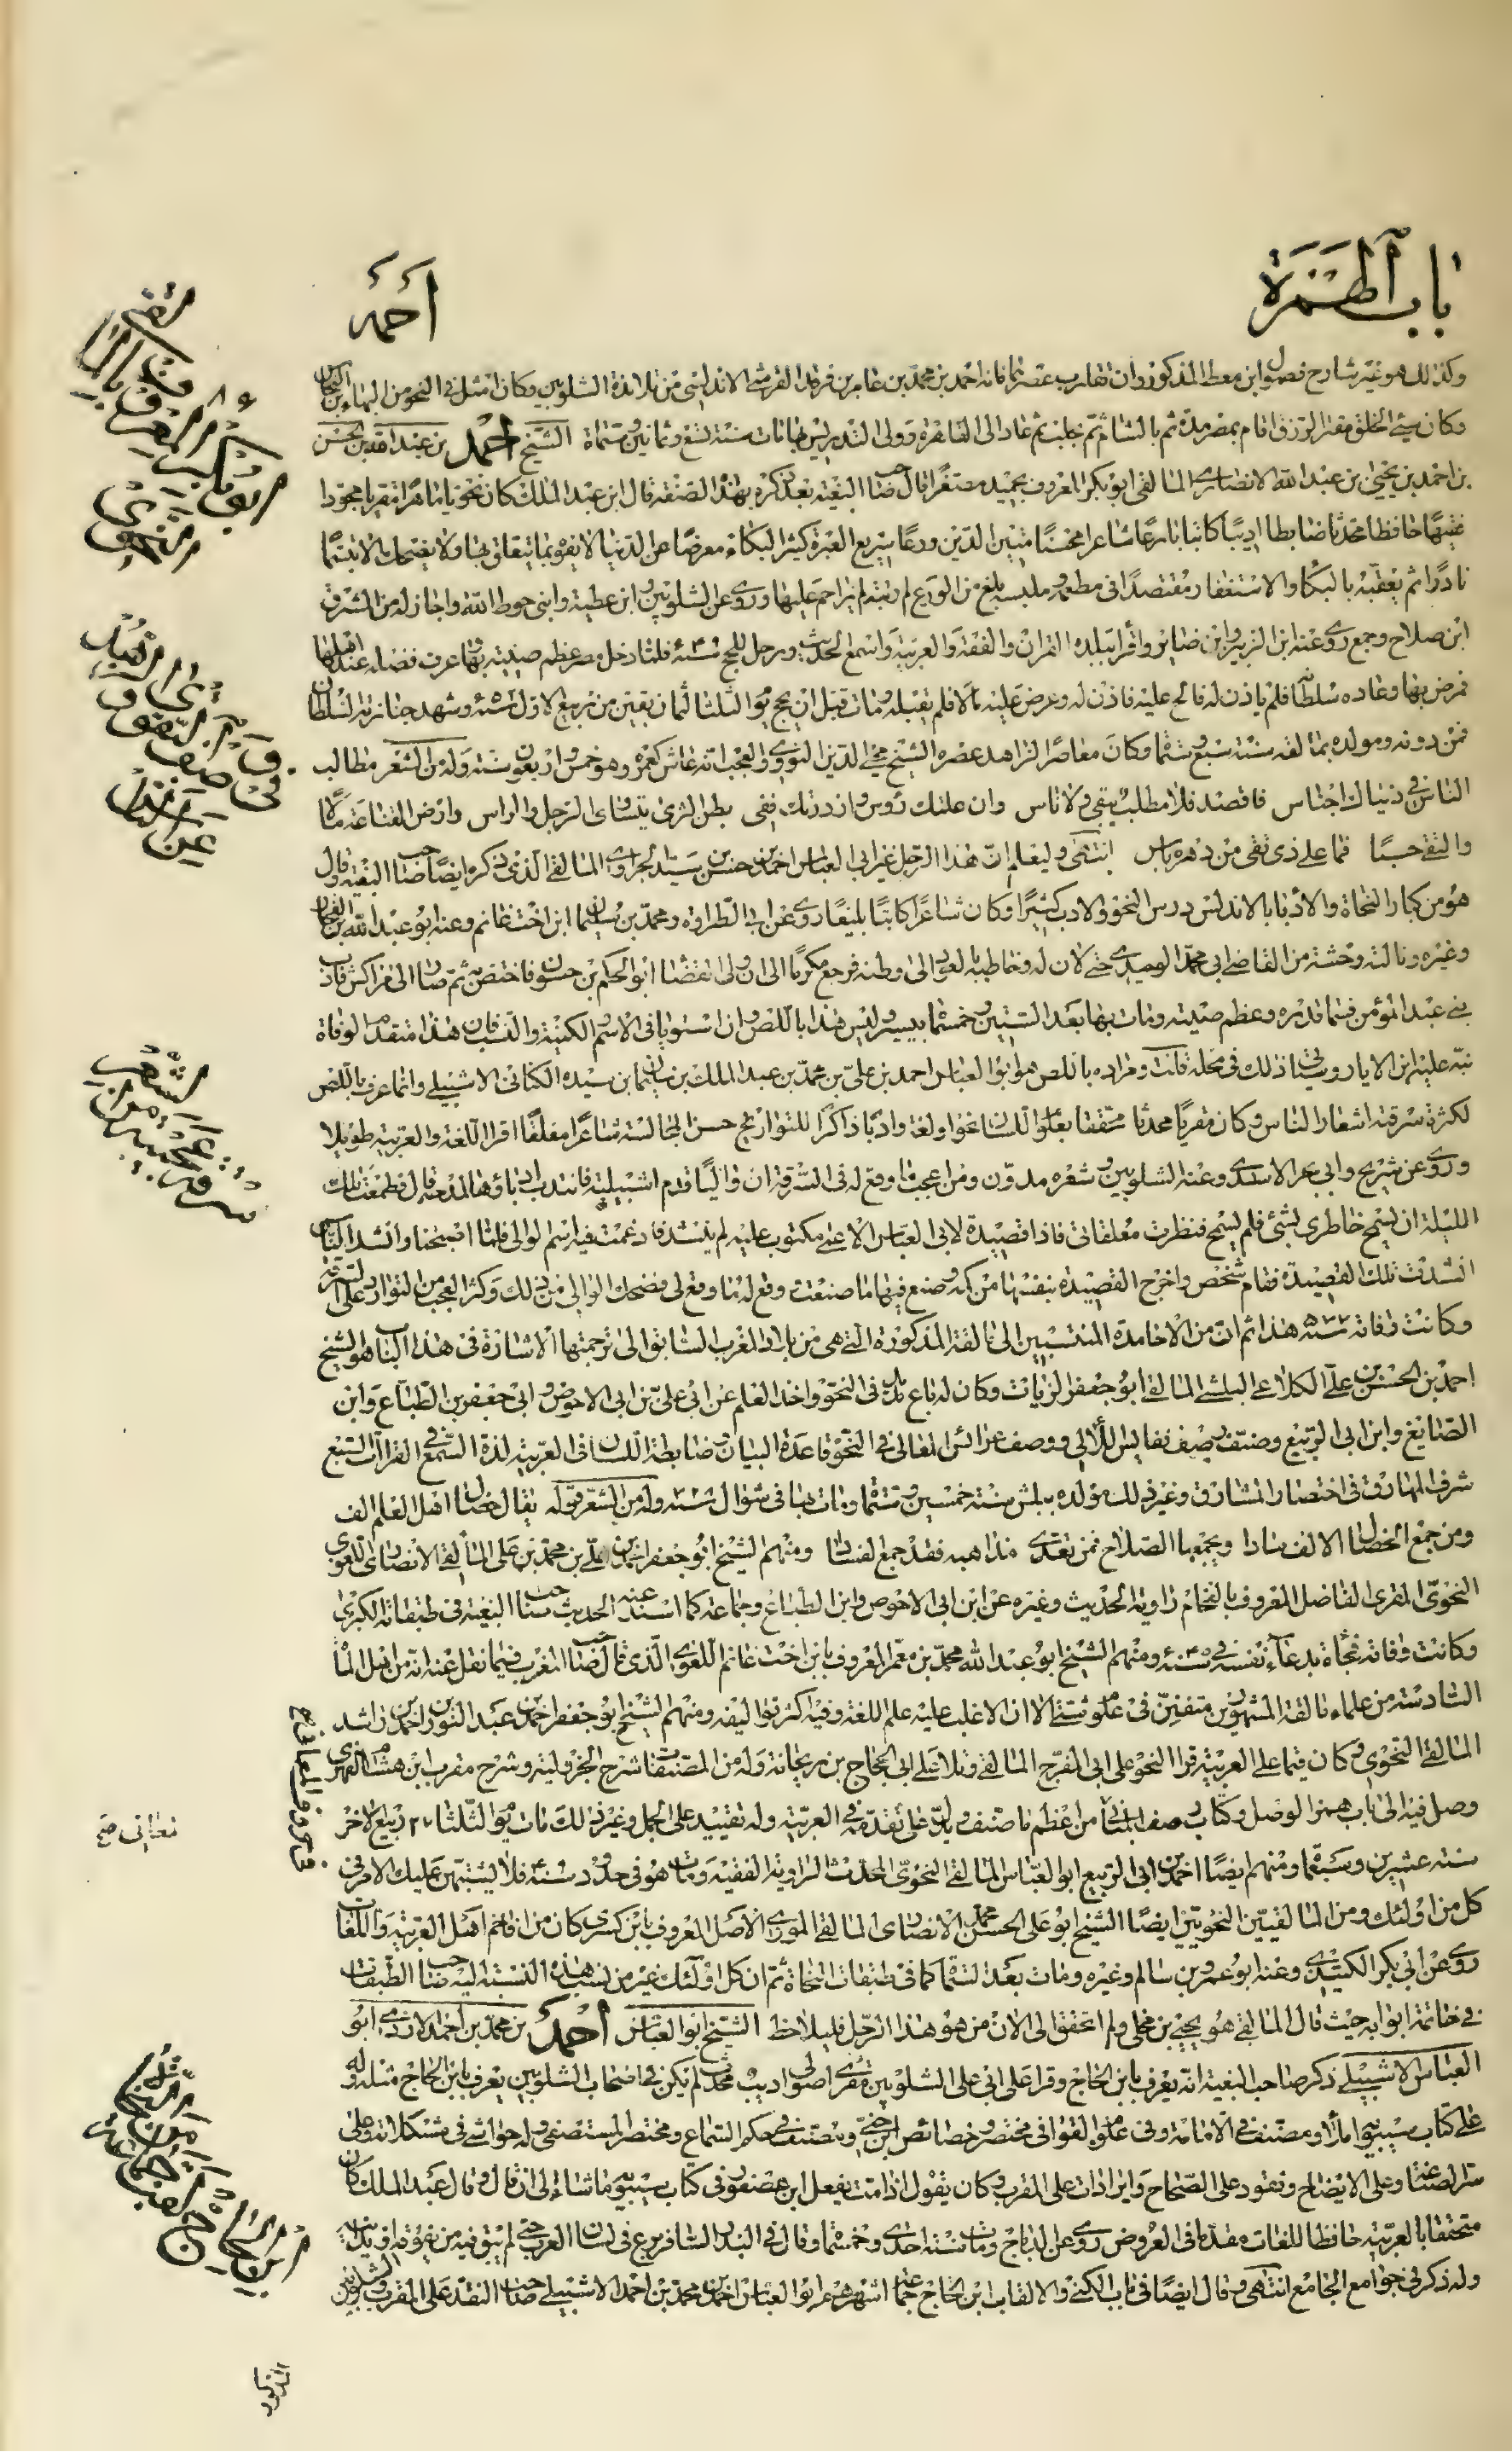 باب الهمزة
احمد
وكذلك هو غير شارح فصول ابن معط المذكور وان تقارب عصراهما فانه احمد بن محمد بن عامر بن فرقد القرشى الاندلسى من تلامذة الشلوبين وكان امثل فى النحو من البهاء بن النحاس
وكان سيئ الخلق مقتر الرزق اقام بمصر مدة ثم بالشام ثم حلب ثم عاد الى القاهرة وولى التدريس بها مات سنة تسع وثمانين وستمأة الشيخ احمد بن عبد الله بن الحسن
بن احمد بن يحيى بن عبد الله الانصارى المالقى ابو بكر المعروف بحميد مصغرا قال صاحب البغية بعد ذكره بهذه الصفة قال ابن عبد الملك كان نحويا ماهرا مقريا مجودا
فقيها حافظا محدثا ضابطا اديبا كاتبا بارعا شاعرا محسنا متين الدين ورعا سريع العبرة كثير البكاء معرضا عن الدنيا لا يفوه بما يتعلق بها ولا يضحك الا تبسما
نادرا ثم يعقبه بالبكا والاستغفار مقتصدا فى مطعمه وملبسه بلغ من الورع لم يزاحم عليها وروى عن الشلوبين وابن عطية وابنى حوط الله واجاز له من المشرق
ابن صلاح وجمع روى عنه ابن الزبير وابن صابر واقرأ ببلده القران والفقه والعربية واسمع الحديث ورحل للحج فلما دخل مصر عظم صيته بها وعرف فضله عند اهلها
فمرض بها وعاده سلطانها فلم ياذن له فالح عليه فاذن له وعرض عليه مالا فلم يقبله ومات قبل ان يحج يوم الثلثا لثمان بقين من ربيع الاول وشهد جنازته السلطان
فمن دونه ومولده بمالقة سنة سبع وستمأة وكان معاصرا لزاهد عصره الشيخ محيى الدين النووى والعجب انه عاش كعمره وهو خمس واربعون سنة وله من الشعر مطالب
الناس فى دنياك اجناس فاقصد فلا مطلب يبقى ولا ناس وان علتك رؤس وازدرتك ففى بطن الثرى يتساوى الرجل والراس وارض القناعة مالا
والتقى حسبا فما على ذى تقى من دهره باس انتهى وليعلم ان هذا الرجل غير ابى العباس احمد بن حسن بن سيد الجراوى المالقى الذى ذكره ايضا صاحب البغية وقال
هو من كبار النحاة والادبا بالاندلس درس النحو والادب كثيرا وكان شاعرا كاتبا بليغا روى عن ابى الطراوة ومحمد بن سليمان ابن اخت غانم وعنه ابو عبد الله بن الفخار
وغيره ونالته وحشة من القاضى ابى محمد الوحيدى حتى لان له وخاطبه بالعود الى وطنه فرجع مكرما الى ان ولى القضا ابو الحكم بن حسون فاختص به ثم صار الى مراكش فادب
بنى عبد المؤمن فسما قدره وعظم صيته ومات بها بعد الستين وخمسمأة بيسير وليس هذا باللص وان استويا فى الاسم الكنية والنسب فان هذا متقدم الوفاة
نبه عليه ابن الابار وبينا ذلك فى محله قلت ومراده باللص هو ابو العباس احمد بن على بن محمد بن عبد الملك بن سليمان بن سيده الكنانى الاشبيلى وانما عرف باللص
لكثرة سرقته اشعار الناس وكان مقريا محدثا متحققا بعلوم اللسان نحوا ولغة وادبا ذاكرا للتواريخ حسن المجالسة شاعرا مفلقا اقرا اللغة والعربية طويلا
وروى عن شريح وابى بحر الاسدى وعنه الشلوبين وشعره مدون ومن اعجب ما وقع له فى السرقة ان واليا قدم اشبيلية فانتدب ادباؤها لمدحه قال فطمعت تلك
الليلة ان يسمح خاطرى بشئ فلم يسمح فنظرت معلقاتى فاذا قصيدة لابى العباس الاعمى مكتوب عليه لم ينشد فادغمت فيها اسم الوالى فلما اصبحنا وانشد الناس
انشدت تلك القصيدة فقام شخص واخرج القصيدة بنفسها من كمه وصنع فيها ما صنعت ووقع له ما وقع لى فضحك الوالى من ذلك وكثر العجب من التوارد على السرقة
وكانت وفاته هذا ثم ان من الاحامدة المنتسبين الى مالقة المذكورة التى هى من بلاد المغرب السابق الى ترجمتها الاشارة فى هذا الباب هو الشيخ
احمد بن الحسن بن على الكلاعى البلشى المالقى ابو جعفر الزيات وكان له باع مديد فى النحو واخذ العلم عن ابى على بن ابى الاحوص وابى جعفر بن الطباع وابن
الصائغ وابن ابى الربيع وصنف رصف نفايس اللآلى ووصف عرائس المعالى فى النحو قاعدة البيان وضابطة اللسان فى العربية لذة السمع فى القراآت السبع
شرف المهارق فى اختصار المشارق وغير ذلك مولده ببلش سنة خمسين وستمأة ومات بها فى شوال وله من الشعر يقال خصال اهل العلم الف
ومن جمع الخصال الالف سادا ويجمعها الصلاح فمن تعدى مذاهبه فقد جمع الفسادا ومنهم الشيخ ابو جعفر احمد بن على بن محمد بن على المالقى الانصارى اللغوى
النحوى المقرى الفاضل المعروف بالفحام راوية الحديث وغيره عن ابن ابى الاحوص وابن الطباع وجماعة كما اسند عنه الحديث صاحب البغية فى طبقاته الكبرى
وكانت وفاته فجأة بدعاء نفسه فى ومنهم الشيخ ابو عبد الله محمد بن معمر المعروف بابن اخت غانم اللغوى الذى قال صاحب المغرب فيما نقل عنه انه من اهل المأة
السادسة من علماء مالقة المشهورين متفنن فى علوم شتى الا ان الاغلب عليه علم اللغة وفيه اكثر تواليفه ومنهم الشيخ ابو جعفر احمد بن عبد النور بن احمد بن راشد
المالقى النحوى وكان قيما على العربية قرا النحو على ابى المفرج المالقى وتلا على ابى الحجاج بن ريحانة وله من المصنفات شرح الجزولية وشرح مقرب ابن هشام الفهرى
وصل فيه الى باب همز الوصل وكتاب رصف المبانى من اعظم ما صنف ويدل على تقدمه فى العربية وله تقييد على الجمل وغير ذلك مات يوم الثلثا ٢٧ ربيع الاخر
سنة عشرين وسبعمأة ومنهم ايضا احمد بن ابى الربيع ابو العباس المالقى النحوى المحدث الراوية الفقيه ومات هو فى حدود فلا يشتبهن عليك الامر فى
كل من اولئك ومن المالقيين النحويين ايضا الشيخ ابو على الحسن بن محمد الانصارى المالقى المورى الاصل المعروف بابن كسرى كان من افاخم اهل العربية واللغات
روى عن ابى بكر الكتندى وعنه ابو عمرو بن سالم وغيره ومات بعد الستمأة كما فى طبقات النحاة ثم ان كل اولئك غير من نسب هذه النسبة اليه صاحب الطبقات
فى خاتمة ابوابه حيث قال المالقى هو يحيى بن محلى ولم اتحقق الى الان من هو هذا الرجل فليلاحظ الشيخ ابو العباس احمد بن محمد بن احمد الازدى ابو
العباس الاشبيلى ذكر صاحب البغية انه يعرف بابن الحاج وقرا على ابى على الشلوبين مقرئ اصولى اديب محدث لم يكن فى اصحاب الشلوبين يعرف بابن الحاج مثله وله
على كتاب سيبويه املاء ومصنف فى الامامة وفى علوم القوافى ومختصر خصائص ابن جنى ومصنف فى حكم السماع ومختصر المستصفى وله حواشى فى مشكلاته وعلى
سر الصناعة وعلى الايضاح ونقود على الصحاح وايرادات على المقرب وكان يقول اذا مت يفعل ابن عصفور فى كتاب سيبويه ما شاء الى ان قال وقال عبد الملك كان
متحققا بالعربية حافظا للغات مقدما فى العروض روى عن الدباج ومات سنة احدى وخمسمأة وقال فى البدر السافر برع فى لسان العرب حتى لم يبق فيه من يفوقه او يدانيه
وله ذكر فى جوامع الجامع انتهى وقال ايضا فى باب الكنى والالقاب ابن الحاج جماعة اشهرهم ابو العباس احمد بن محمد بن احمد الاشبيلى صاحب النقد على المقرب والشلوبين
ابو بكر المعروف
النحوى
الشعر
سرقة
معانى صح
ابن الحاج
المذكور